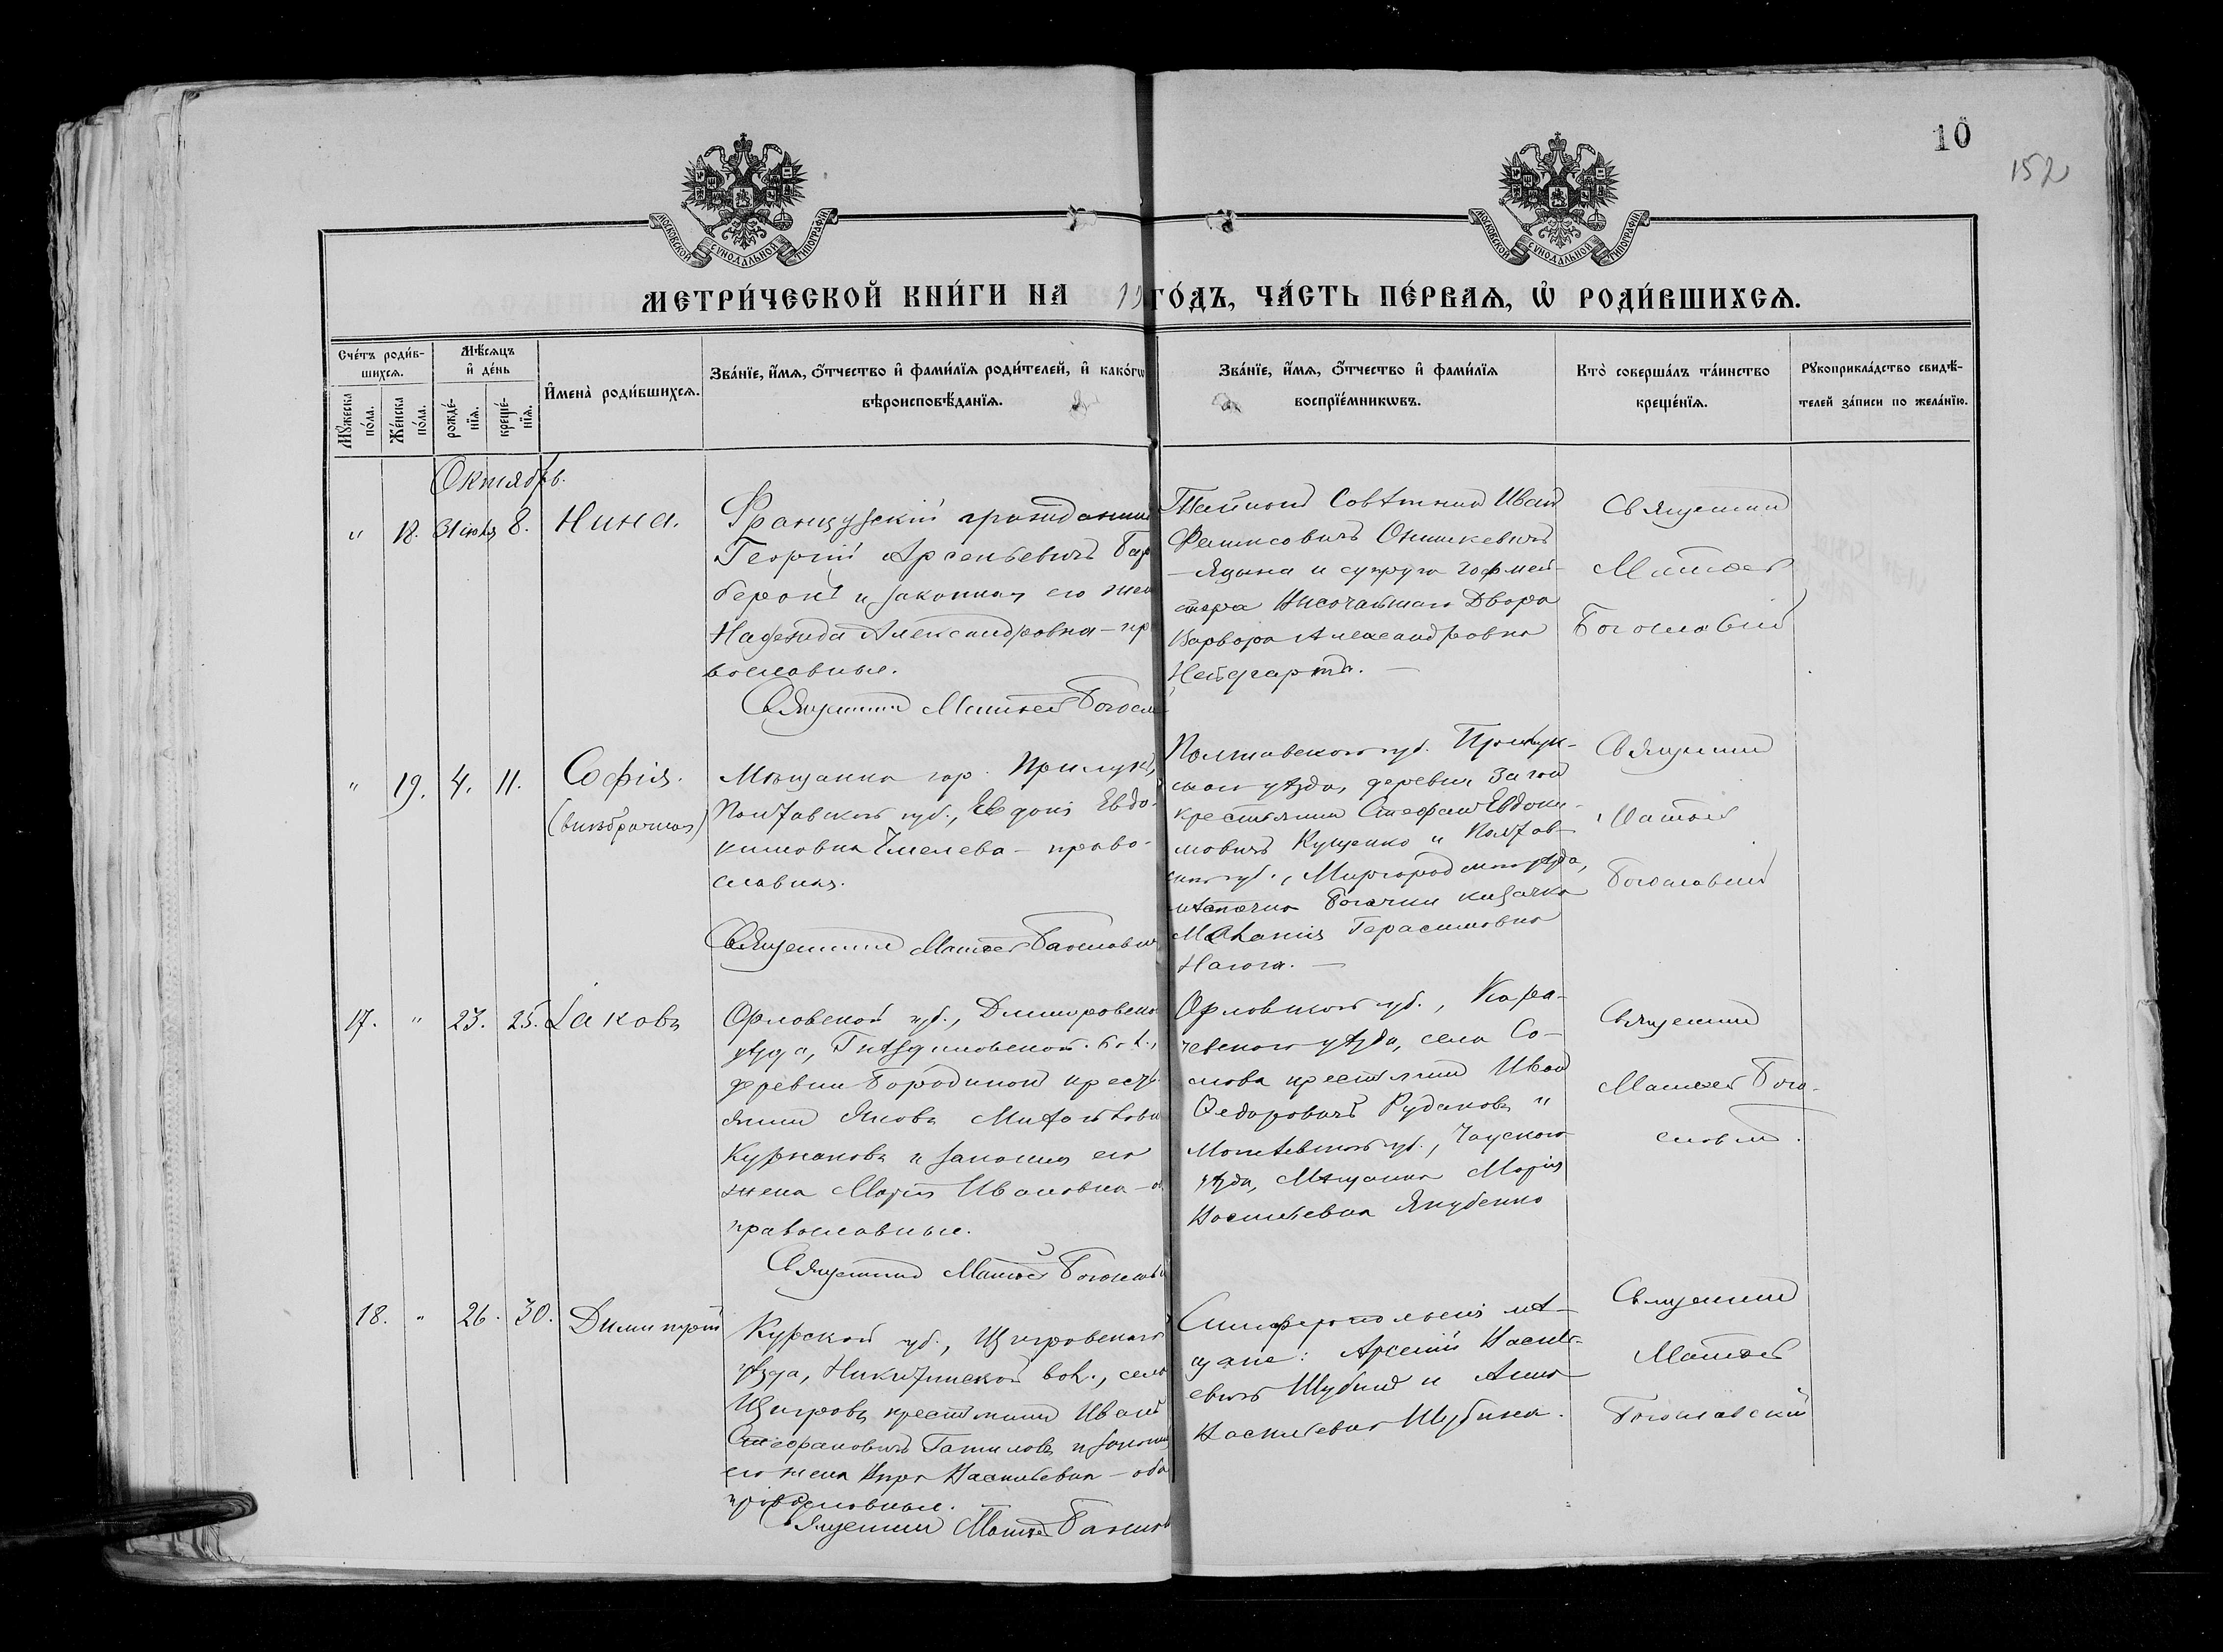 10
152
МОСКОВСКОЙ СѴНОДАЛЬНОЙ ТИПОГРАФІИ
МОСКОВСКОЙ СѴНОДАЛЬНОЙ ТИПОГРАФІИ
МЕТРИ́ЧЕСКОЙ КНИ́ГИ НА 19 ГО́ДЪ, ЧА́СТЬ ПЕ́РВАѦ, Ѡ҆ РОДИ́ВШИХСѦ.
Сче́тъ роди́в-
шихсѧ.
Мꙋ́жеска по́ла.
Же́нска по́ла.
Мѣ́сѧцъ
и҆ де́нь
рожде́-
нїѧ.
креще́-
нїѧ.
И҆мена̀ роди́вшихсѧ.
Зва́нїе, и҆́мѧ, ѻ҆́тчество и҆ фами́лїѧ роди́телей, и҆ како́гѡ
вѣроисповѣ́данїѧ.
Зва́нїе, и҆́мѧ, ѻ҆́тчество и҆ фами́лїѧ
воспрїе́мникѡвъ.
Кто̀ соверша́лъ та́инство
креще́нїѧ.
Рꙋкоприкла́дство свидѣ́-
телей за́писи по жела́нїю.
Октябрь.
" 18. 31 іюля 8. Нина.
Французскій гражданин
Георгій Арсеньевичъ Бар
беронъ и законная его жен
Надежда Александровна - пр
вославные.
Священникъ Матѳей Богосл
Тайный Совѣтникъ Иван
Феликсовичъ Онишкевичъ
- Яцына и супруга Гофмей-
стера Высочайшаго Двора
Варвара Александровна
Нейдгартъ. -
Священник
Матѳей
Богословскій
" 19. 4. 11. София.
(внѣбрачная)
Мѣщанка гор. Прилукъ,
Полтавской губ., Евдокія Евдо-
кимовна Чмелева - право-
славная.
Священникъ Матѳей Богословск
Полтавской губ. Прилук-
скаго уѣзда, деревни
крестьянинъ Стефанъ Евдоки-
мовичъ Куценко и Полтав-
ской губ., Миргородскаго уѣзда,
мѣстечка Богачки казачка
Меланія Герасимовна
Нагога. -
Священник
Матѳей
Богословскій
17. " 23. 25. Іаковъ
Орловской губ., Дмитровска
уѣзда, Гнѣздиловской вол.,
деревни Бородиной кресть-
янинъ Яковъ
Курнаковъ и законная его
жена Марія Ивановна - о
православные.
Священникъ Матѳей Богословс
Орловской губ., Кара-
чевскаго уѣзда, села Со-
мова крестьянинъ Иван
Ѳедоровичъ Рудаковъ и
Могилевской губ., Чаускаго
уѣзда, мѣщанка Марія
Васильевна Якубенко
Священник
Матѳей Бого-
словск.
18. " 26. 30. Димитрій
Курской губ., Щигровскаго
уѣзда, Никитинской вол., села
Щигровъ крестьянинъ Иванъ
Стефановичъ и законная
его жена Васильевна - оба
православные.
Священник Матѳей Богослов
Симферопольскіе мѣ-
щане: Арсеній Василь-
евичъ Шубинъ и Анна
Васильевна Шубина.
Священник
Матѳей
Богословскій